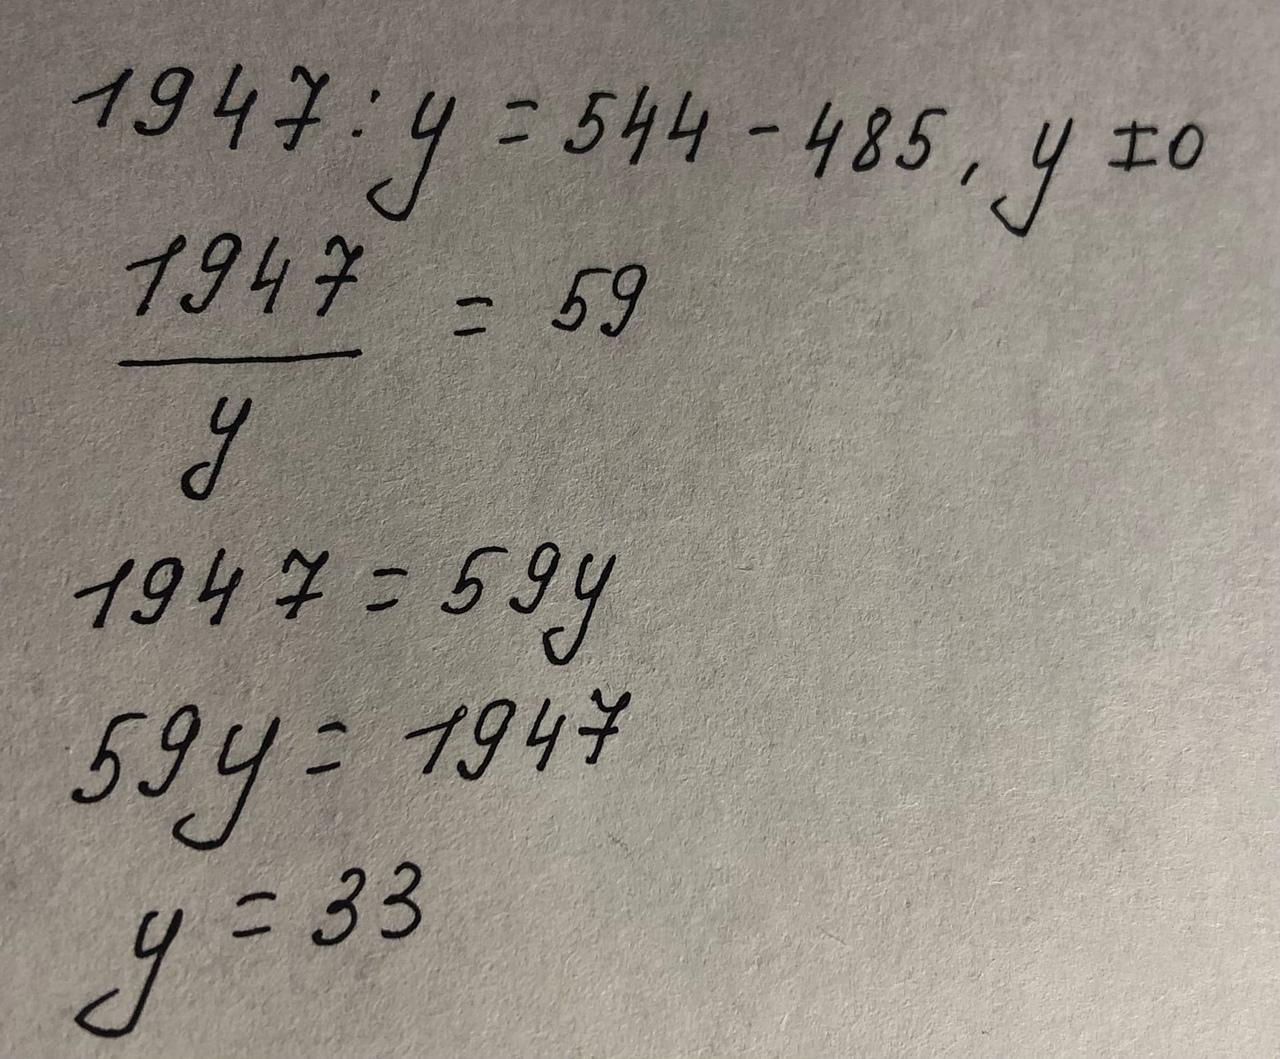 1947 : y = 544 - 485, y ≠ 0
1947
y
= 59
1947 = 59y
59y = 1947
y = 33